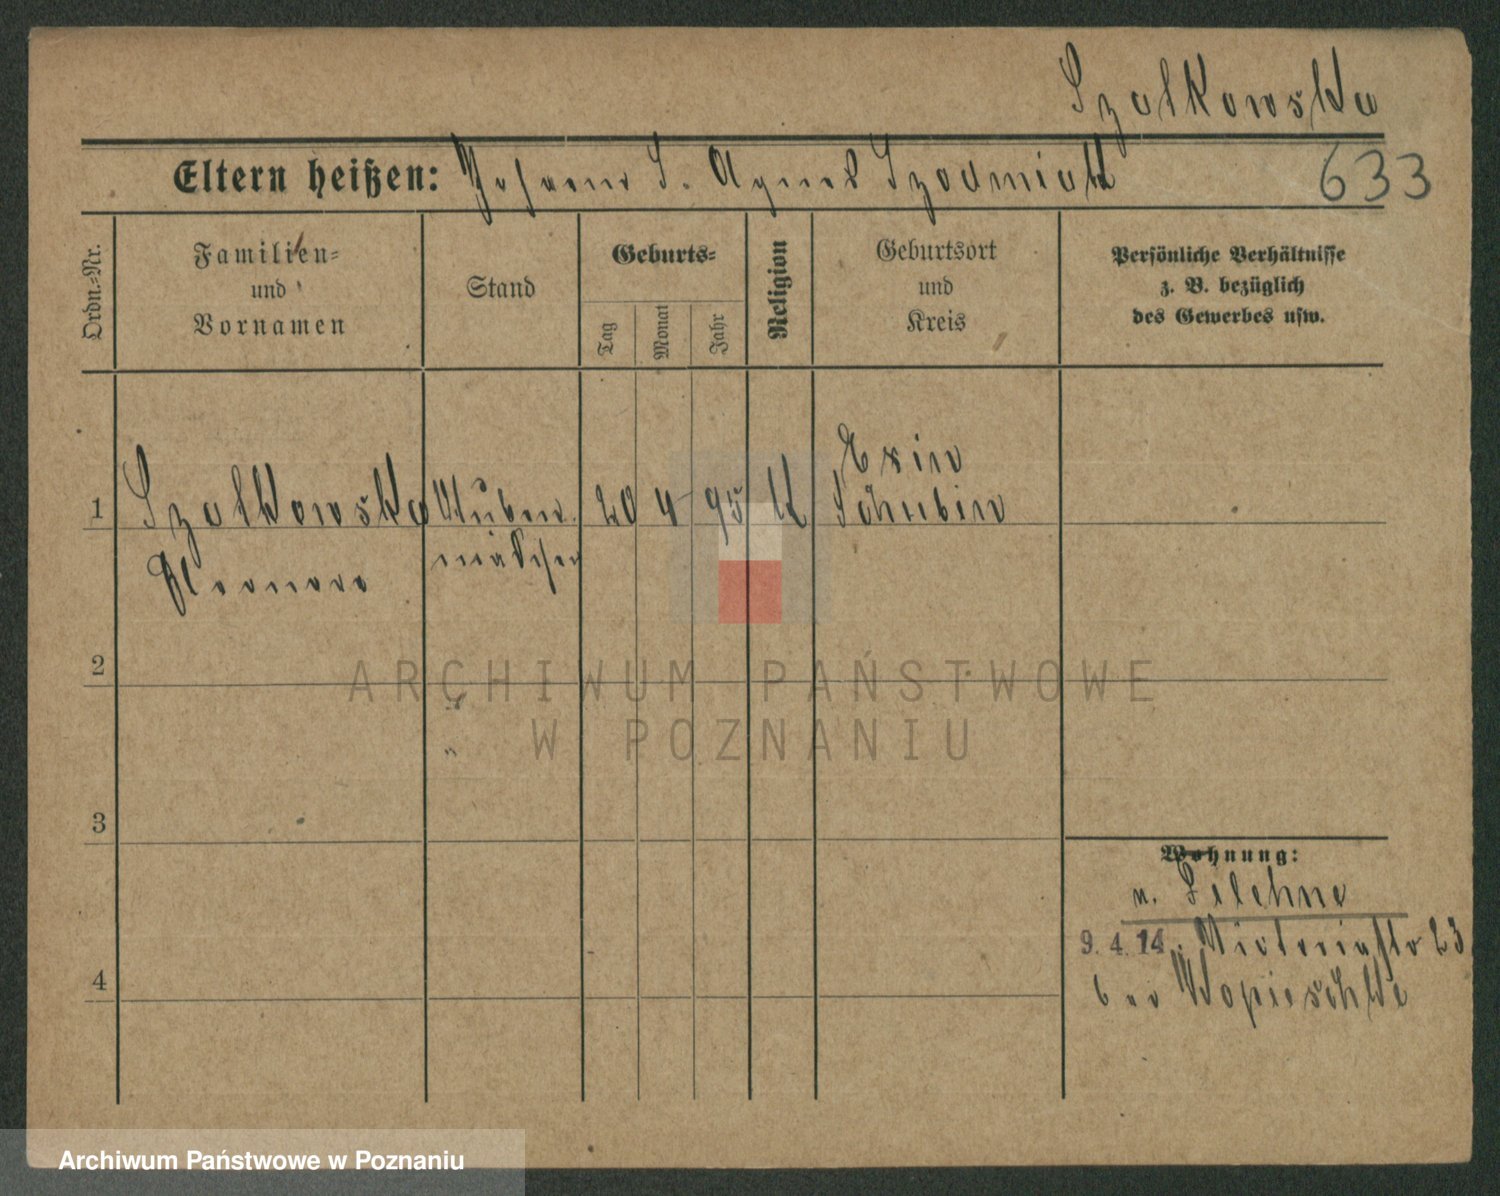 Szalkowska
Eltern heißen: Johann S. Agnes Szodmiak
633
Ordn.-Nr.
Familien-
und
Vornamen
Stand
Geburts-
Tag
Monat
Jahr
Religion
Geburtsort
und
Kreis
Persönliche Verhältnisse
z. B. bezüglich
des Gewerbes usw.
1
Szalkowska
Eleonora
Stuben
mädchen
20 4 95 K
Exin
Schubin
2
"
"
3
4
Wohnung:
n. Filehne
9. 4. 14. Victoriastr 23
bei
ARCHIWUM PAŃSTWOWE
W POZNANIU
Archiwum Państwowe w Poznaniu